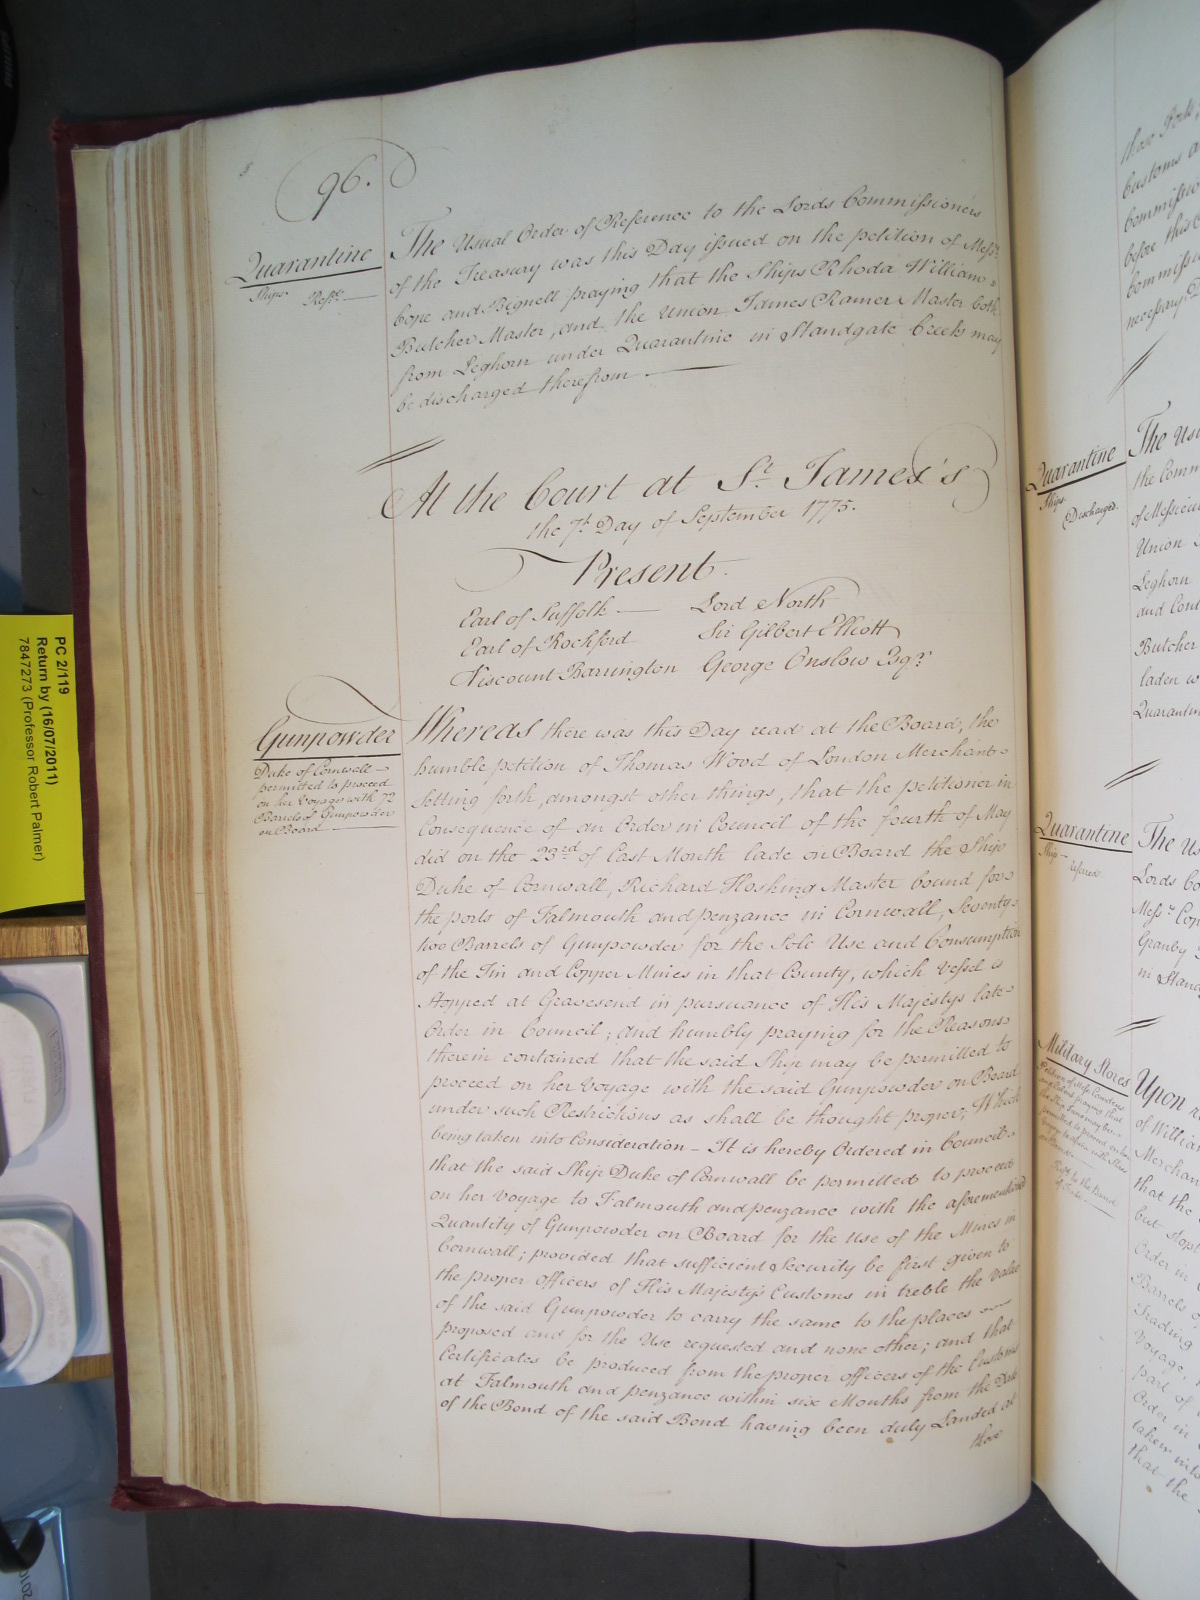 96.
Quarantine
Ships. Refce.
The Usual Order of Reference to the Lords Commissioners
of the Treasury was this Day issued on the petition of Messrs.
Cope and Bignell praying that the Ships Rhoda William
Butcher Master, and the Union James Ramer Master both
from Leghorn under Quarantine in Standgate Creek may
be discharged therefrom
At the Court at St. James's
the 7th Day of September 1775.
Present.
Earl of Suffolk Lord North
Earl of Rochford Sir Gilbert Elliott
Viscount Barrington George Onslow Esqr.
Gunpowder
Duke of Cornwall
permitted to proceed
on her Voyage with 72
Barrels of Gunpowder
on Board
Whereas there was this Day read at the Board, the
humble petition of Thomas Wood of London Merchant
Setting forth, amongst other things, that the petitioner in
Consequence of an Order in Council of the fourth of May
did on the 23rd of last Month lade on Board the Ship
Duke of Cornwall, Richard Hosking Master bound for
the ports of Falmouth and penzance in Cornwall, Seventy
two Barrels of Gunpowder for the Sole Use and Consumption
of the Tin and Copper Mines in that County, which Vessel is
Stopped at Gravesend in pursuance of His Majestys late
Order in Council; and humbly praying for the Reasons
therein contained that the said Ship may be permitted to
proceed on her Voyage with the said Gunpowder on Board
under such Restrictions as shall be thought proper; Which
being taken into Consideration - It is hereby Ordered in Council
that the said Ship Duke of Cornwall be permitted to proceed
on her Voyage to Falmouth and penzance with the aforementioned
Quantity of Gunpowder on Board for the Use of the Mines in
Cornwall; provided that sufficient Security be first given to
the proper officers of His Majesty's Customs in treble the Value
of the said Gunpowder to carry the same to the places
proposed and for the Use requested and none other; and that
Certificates be produced from the proper officers of the Customs
at Falmouth and penzance within six Months from the Date
of the Bond of the said Bond having been duly Landed at
those
those Ports,
Customs
before this
necessary
Quarantine
Ships
Discharged.
The Usu
the Comm
of Messieurs
Union
Leghorn
and Cont
Butcher
laden w
Quarantin
Quarantine
Ship
referred
The Us
Lords Co
Messrs. Cop
Granby
in Stand
Military Stores
Upon
of William
Merchan
that the
but Stopt
Order in
Barrels o
Trading
Voyage,
part of
Order in
taken into
that the
PC 2/119
Return by (16/07/2011)
7847273 (Professor Robert Palmer)